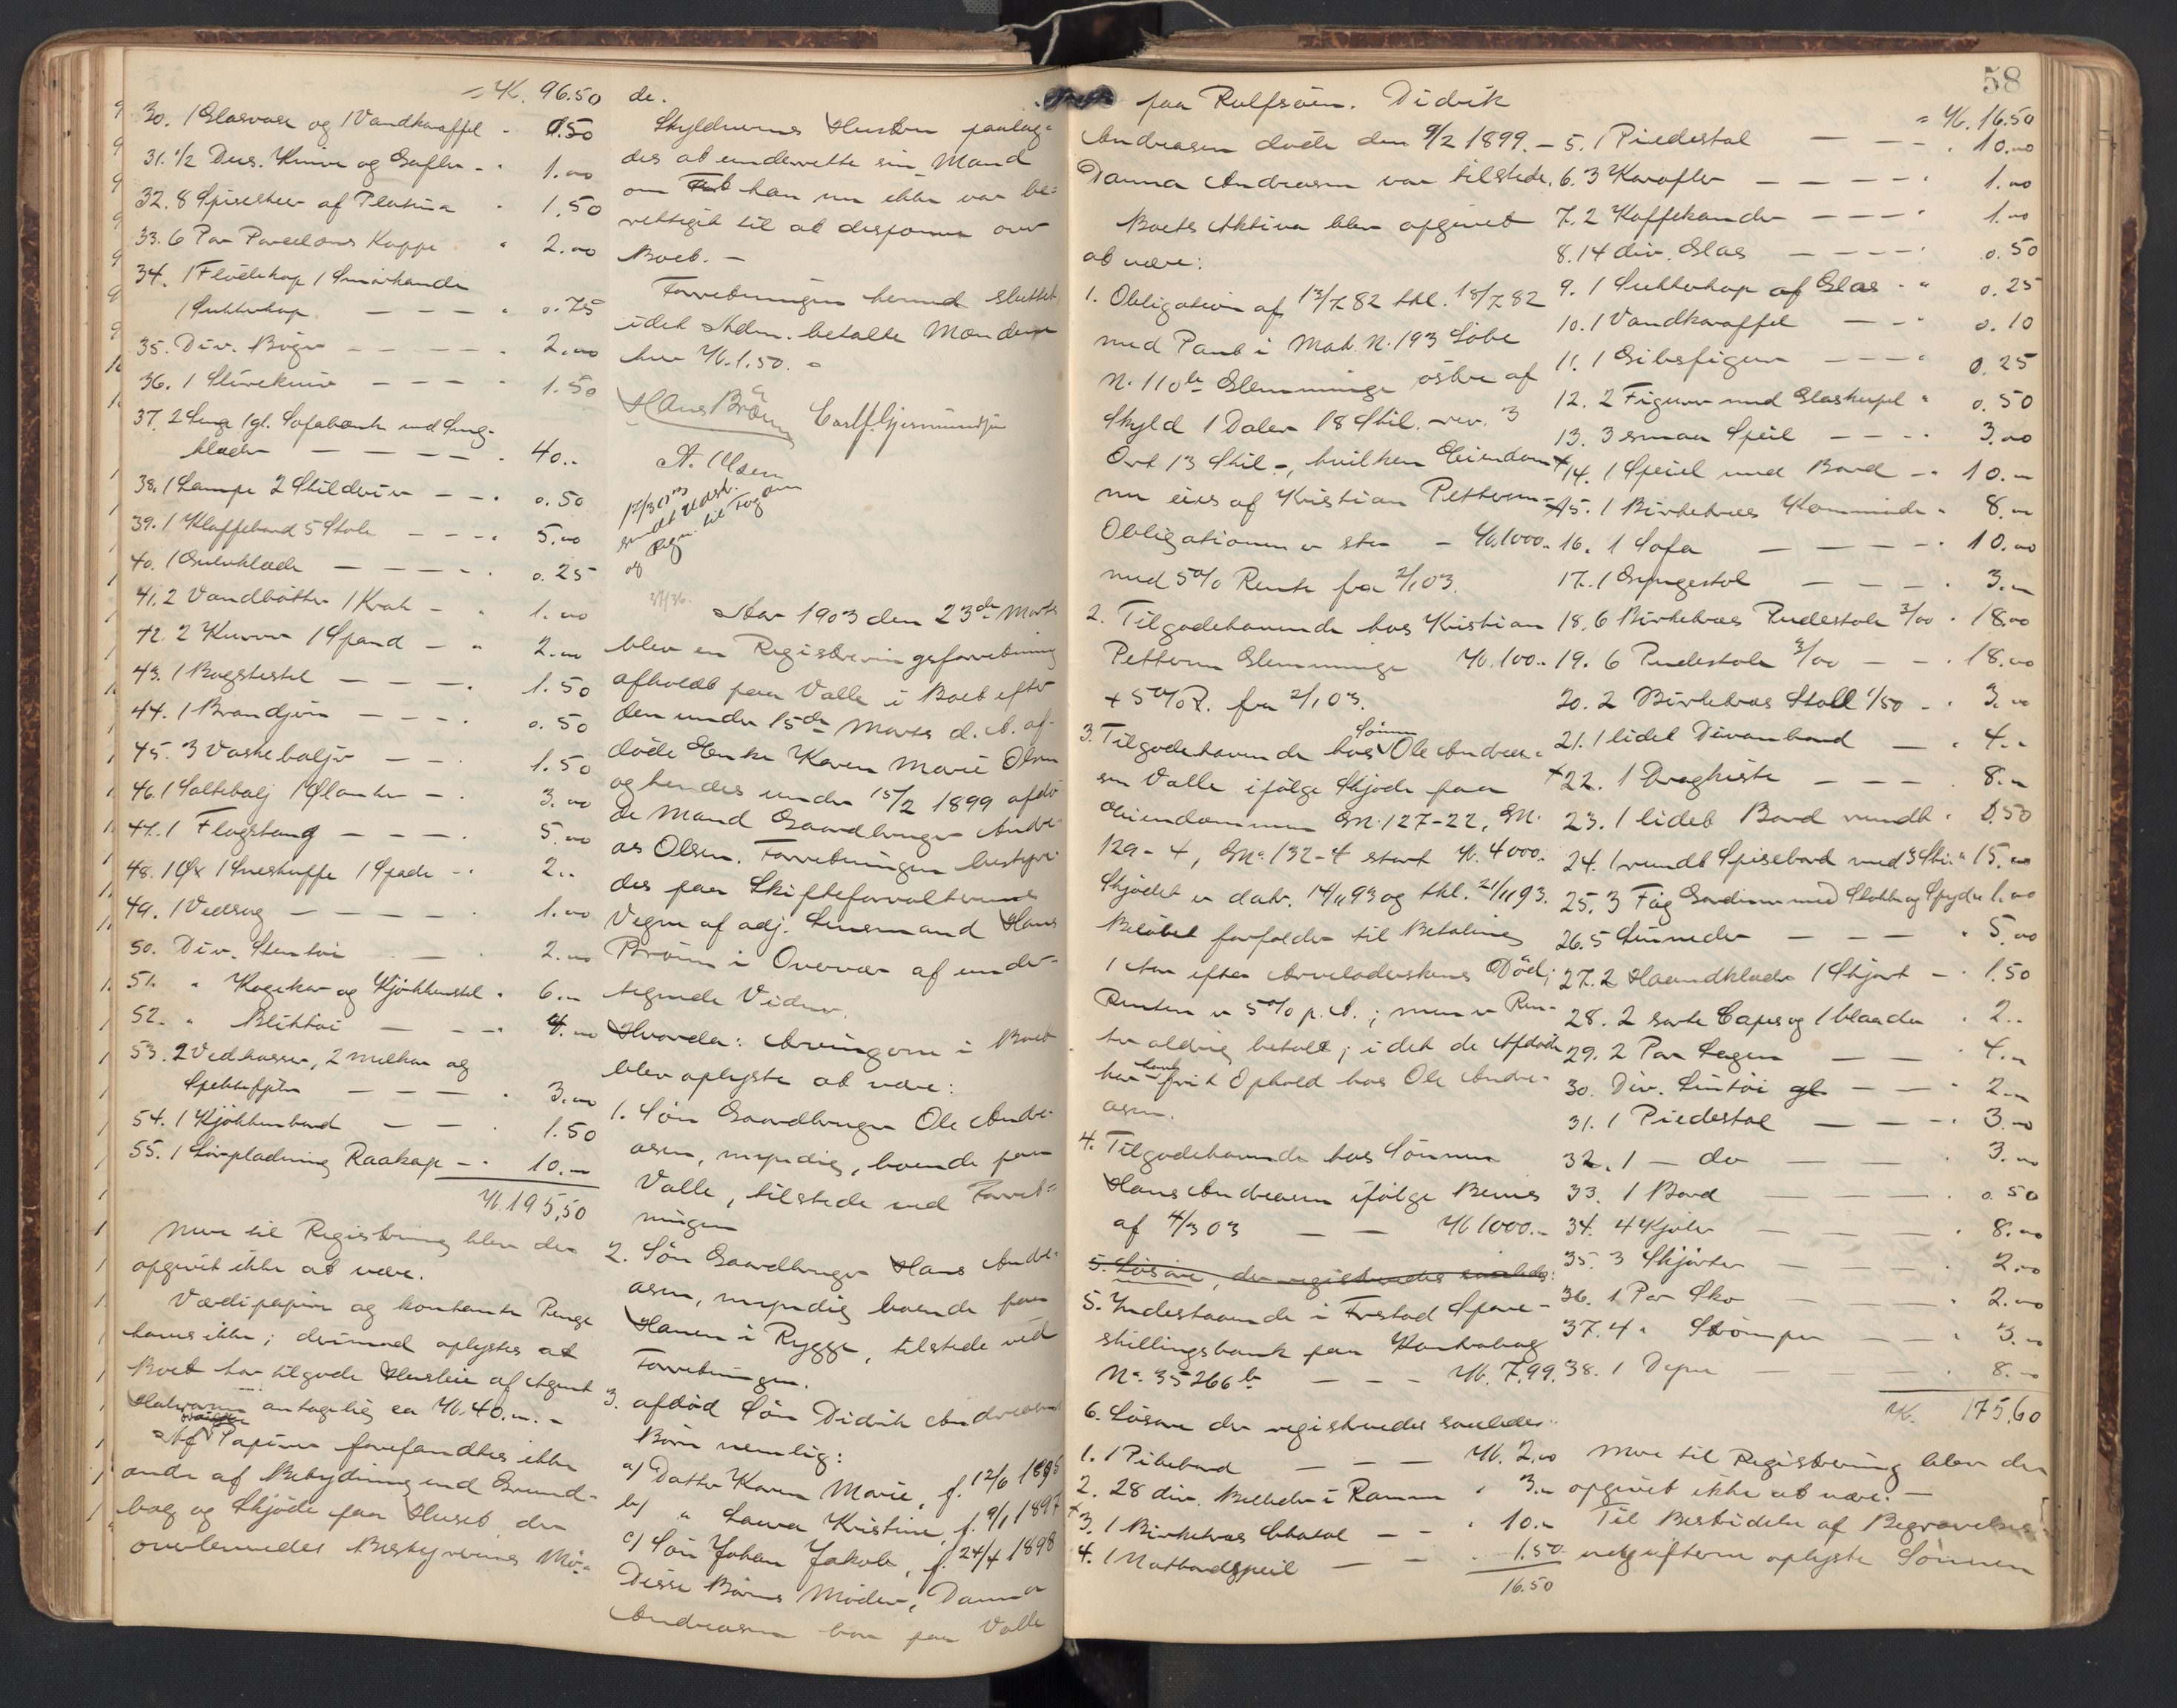 = K. 96.50
30. 1 Glasvase og 1 Vandkaraffel - 0.50
31. 1/2 Dus. Knive og Gafler - 1.00
32. 8 Spiseskeer af Platina - 1.50
33. 6 Par Porcelæns Koppe " 2.00
34. 1 Flødekop 1 Smørkande
1 Sukkerkop - - - - " 0.75
35. Div. Bøger - - - - - 2.00
36. 1 - - - - 1.50
37. 2 Seng 1 gl. Sofabænk med Seng-
klæder - - - - - 40..
38. 1 Lampe 2 Skilderier - - - 0.50
39. 1 Klaffebord 5 Stole - - - - 5.00
40. 1 Gulvklæde - - - - - 0.25
41. 2 Vandbøtter 1 Krak - " 1.00
42. 2 Kurver 1 Spand - " 2.00
43. 1 Bogstestel - - - - 1.50
44. 1 Brandjern - - - . 0.50
45. 3 Vaskebaljer - - . 1.50
46. 1 Saltebalj - . 3.00
47. 1 Flagstang - - - . 5.00
48. 1 Øx 1 Sneskuffe 1 Spade - . 2..
49. 1 Vedsag - - - - . 1.00
50. Div. Stentøi - . 2.00
51. " Kogekar og Kjøkkenstel " 6.-
52. " Bliktøi - - - " 4.00
53. 2 Vedkasser, 2 Melkar og
- - - - . 3.00
54. 1 Kjøkkenbord - - . 1.50
55. 1 Raakage - . 10.-
K. 195,50
Mere til Registrering blev der
opgivet ikke at være.
Værdipapirer og kontante Penge
haves ikke; derimod oplystes at
Boet har tilgode Husleie af Agent
Halvorsen antagelig ca K. 40.00. -
Af Papirer forefandtes ikke
andre af Betydning end Grund-
bog og Skjøde paa Huset der
overleveredes Bestyrerens Mø-
de.
Skyldnerens Hustru paalag-
des at underrette sin Mand
om at han nu ikke var be-
rettiget til at disponere over
Boet. -
Forretningen hermed sluttet
idet Adm. betalte Mændene
hver K. 1.50. =
Hans Brøm Carl J. Gjermundsen
A. Olsen
12/3 03
sendt Udskr.
og Regn. til Fogden
37/36.
Aar 1903 den 23de Marts
blev en Registreringsforretning
afholdt paa Valle i Boet efter
den under 15de Marts d. A. af-
døde Enke Karen Marie Olsen
og hendes under 15/2 1899 afdø-
de Mand Gaardbruger Andre-
as Olsen. Forretningen bestyre-
des paa Skifteforvalterens
Vegne af adj. Lensmand Hans
Brøm i Overvær af under-
tegnede Vidner.
Hvorda: Arvingerne i Boet
blev oplyste at være:
1. Søn Gaardbruger Ole Andre-
asen, myndig, boende paa
Valle, tilstede ved Forret-
ningen
2. Søn Gaardbruger Hans Andre-
asen, myndig boende paa
Hanen i Rygge, tilstede ved
Forretningen.
3. afdød Søn Didrik Andreasens
Børn nemlig:
a) Datter Karen Marie, f. 12/6 1895
b) " Laura Kristine, f. 9/1 1897
c) Søn Johan Jakob, f. 24/4 1898
Disse Børns Moder, Danna
Andreasen bor paa Valle
58
paa Rolfsøen. Didrik
Andreasen døde den 9/2 1899. -
Danna Andreasen var tilstede.
Boets Aktiva blev opgivet
at være:
1. Obligation af 13/7 82 tkl. 18/7 82
med Pant i Mat. N. 193 Løbe
N. 110b Glemminge østre af
Skyld 1 Daler 18 Skil. rev. 3
Ort 13 Skil -, hvilken Eiendom
nu eies af Kristian Pettersen -
Obligationen er stor - K. 1000.-
med 5% Rente fra 2/1 03.
2. Tilgodehavende hos Kristian
Pettersen Glemminge K. 100.-
+ 5% R. fra 2/1 03.
3. Tilgodehavende hos Sønnen Ole Andrea-
sen Valle ifølge Skjøde paa
Eiendommen GN. 127-22, GN.
129-4, GNo. 132-4 stort K. 4000.-
Skjødet er datr. 14/11 93 og tkl. 21/11 93.
Beløbet forfalder til Betaling
1 Aar efter Arveladerskens Død;
Renten er 5% p. A.; men er Ren-
ter aldrig betalt; idet de Afdøde
har havt frit Ophold hos Ole Andre-
asen.
4. Tilgodehavende hos Sønnen
Hans Andreasen ifølge Bevis
af 4/3 03 - - K 1000.-
5. Løsøre, der registreredes saaledes:
5. Indestaaende i Fredstad Spare-
skillingsbank paa Kontrabog
No. 35266b - - - K. 7,99.
6. Løsøre der registreredes saaledes:
1. 1 Pibebord - - - K. 2,00
2. 28 div. Billeder i Ramme " 3.-
+ 3. 1 Birketræs Chatol - - " 10.-
4. 1 Natbordspeil - - . 1.50
16.50
= K. 16.50
5. 1 Piedestal - - - . 10.00
6. 3 Karafler - - - - - . 1.00
7. 2 Kaffekander - - - - " 1.00
8. 14 div. Glas - - - - . 0.50
9. 1 Sukkerkop af Glas - " 0.25
10. 1 Vandkaraffel - - " 0.10
11. 1 Gibsfigur - - - - " 0.25
12. 2 Figurer med Glaskupel " 0.50
13. 3 smaa Speil - - - . 3.00
+ 14. 1 Speil med Bord - . 10.-
+ 15. 1 Birketræs Kommode " 8.-
16. 1 Sofa - - - - . 10.00
17. 1 Gyngestol - - - . 3.-
18. 6 Birketræs Pudestole 3/00 . 18.00
19. 6 Pudestole 3/00 - - . 18.00
20. 2 Birketræs Stoll 1/50 - . 3.00
21. 1 lidet Divanbord - . 4.-
+ 22. 1 Dragkiste - - - . 8.-
23. 1 lidet Bord rundt . 0.50
24. 1 rundt Spisebord med 3 " 15.00
25. 3 Fag Gardiner med Stokke og Spyd " 1.00
26. 5 - - - . 5.00
27. 2 Haandklæde 1 Skjørt - . 1.50
28. 2 sorte Capes og 1 blaa do . 2..
29. 2 Par Lagen - - . 4.-
30. Div. Lintøi gl - - . 2.-
31. 1 Piedestal - - - . 3.00
32. 1 - do - - . 3.00
33. 1 Bord - - - - . 0.50
34. 4 Kjoler - - - - . 8.00
35. 3 Skjørter - - - - . 2.00
36. 1 Par Sko - - - . 2.00
37. 4 " Strømper - - " 3.-
38. 1 - - . 8.00
K. 175,60
Mere til Registrering blev der
opgivet ikke at være. -
Til Bestridelse af Begravelses-
udgifterne oplyste Sønnen